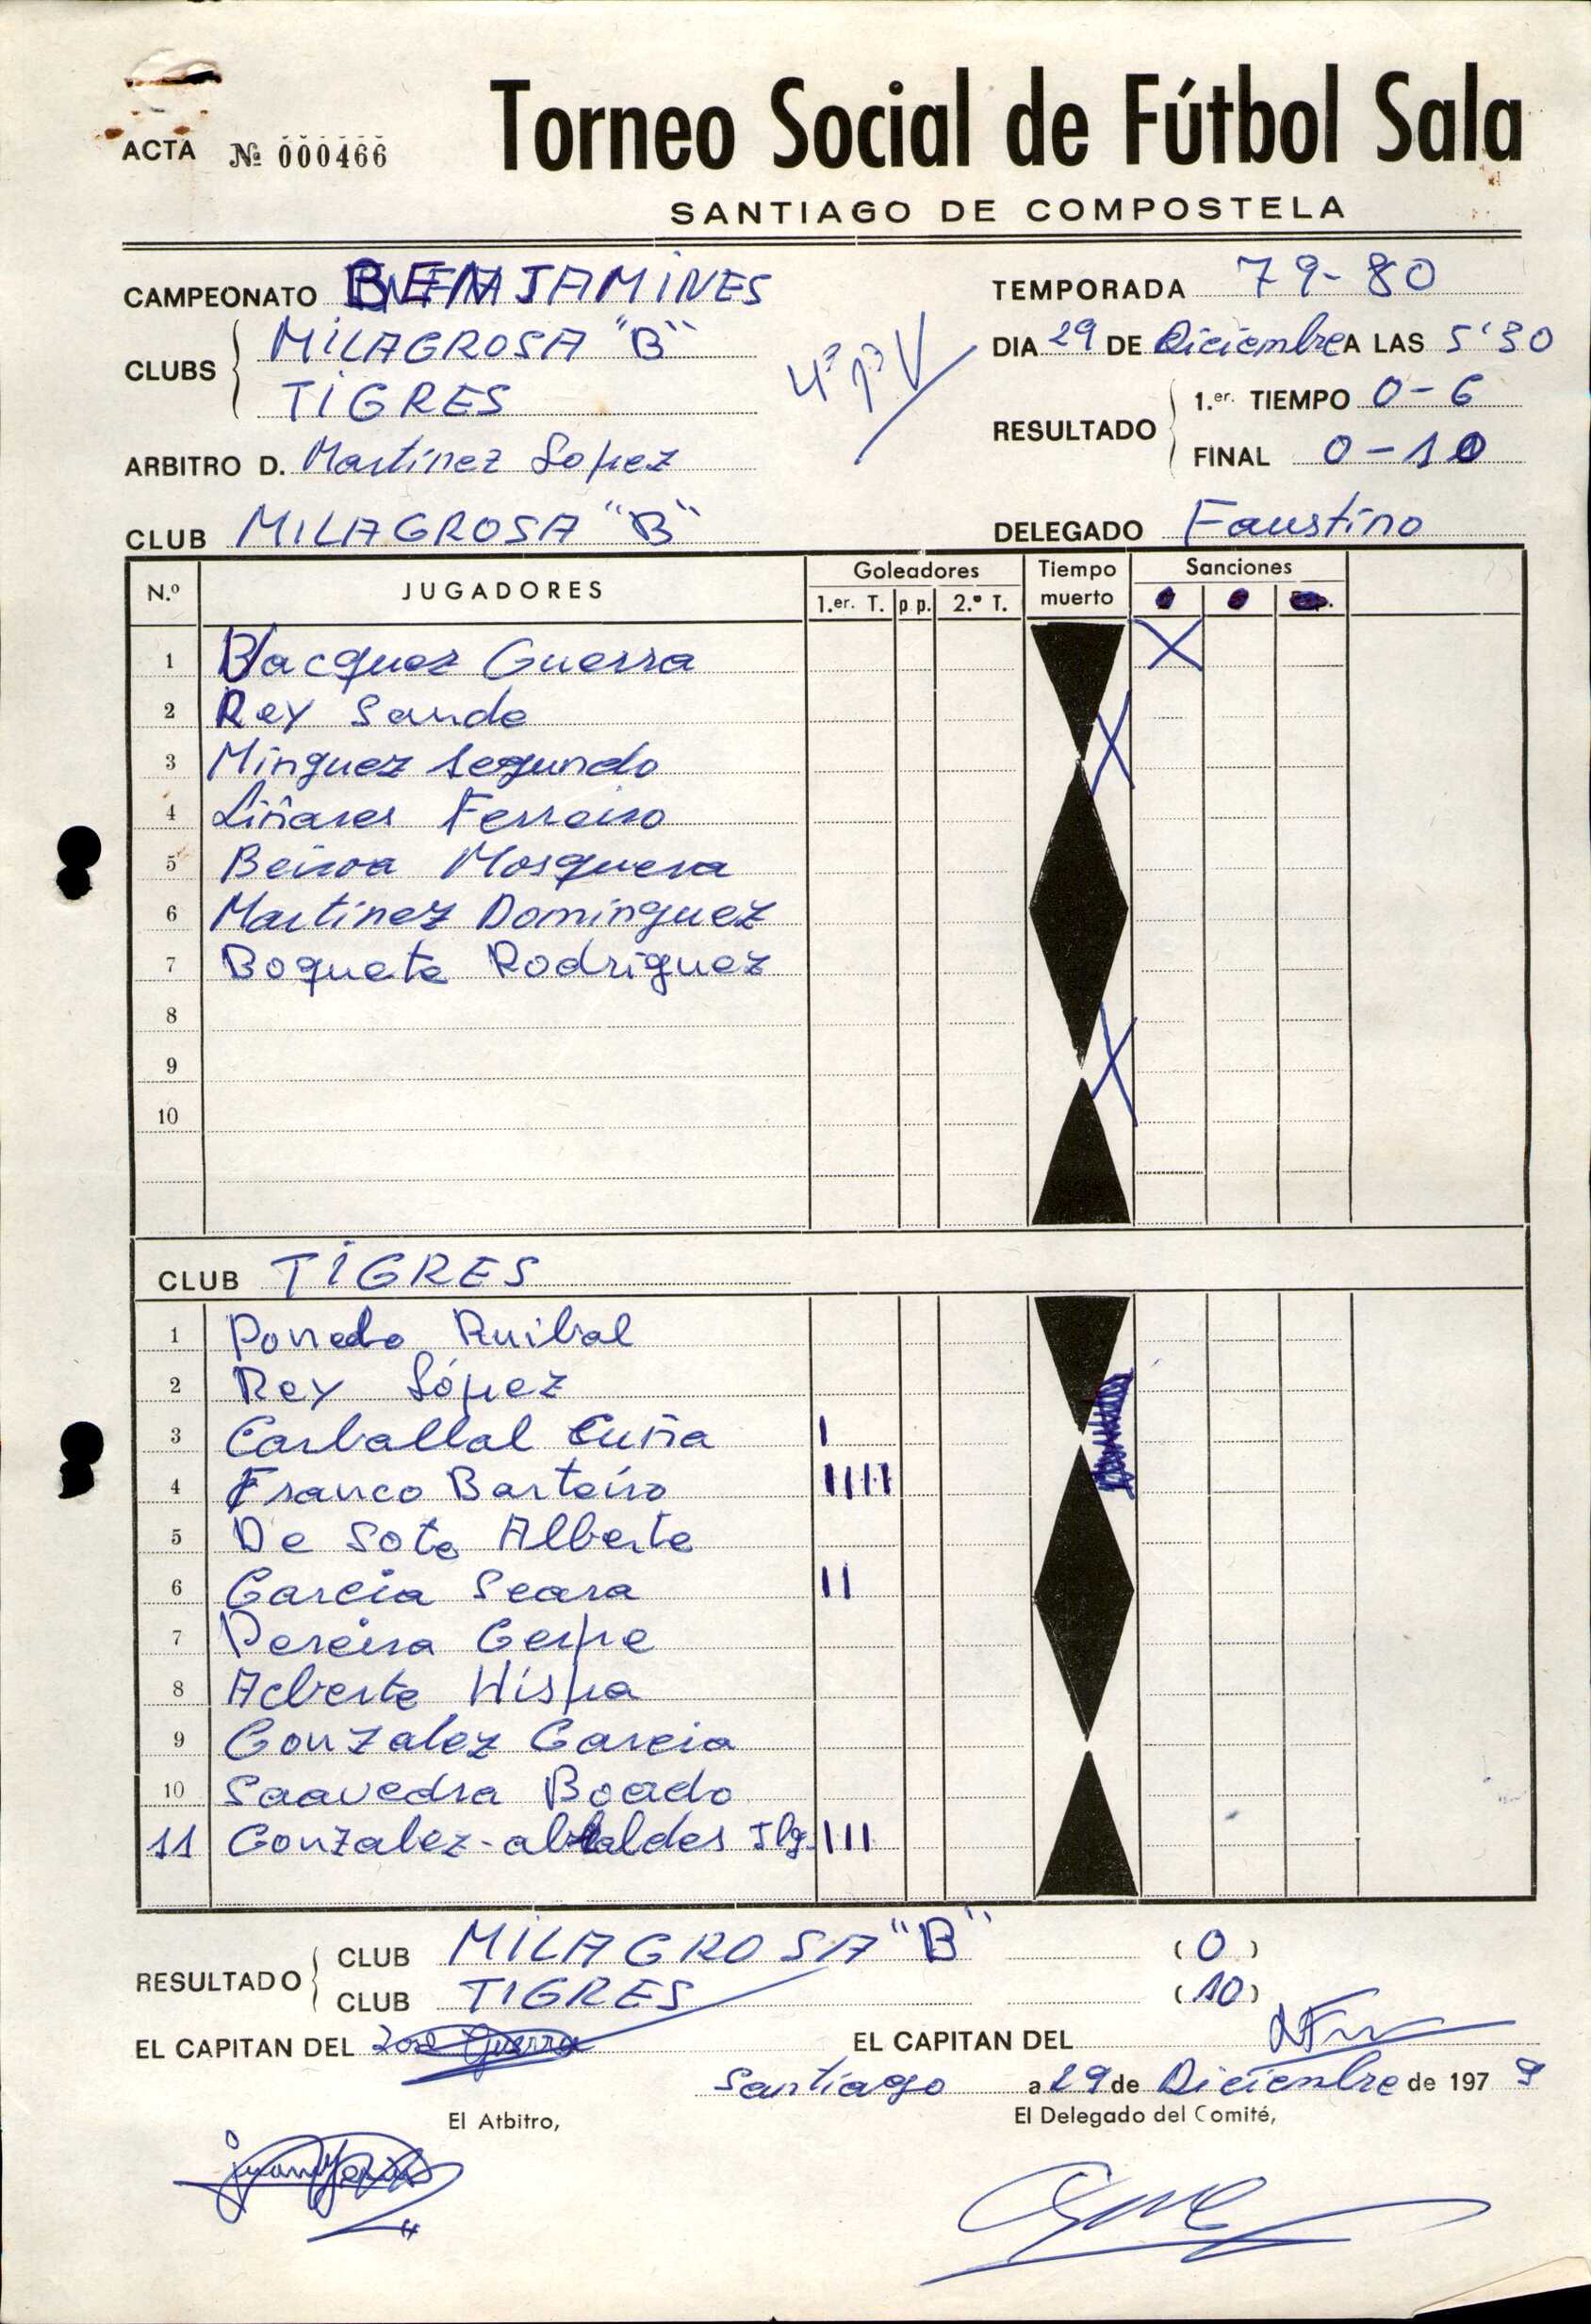 Torneo Social de Fútbol Sala
ACTA Nº 000466
SANTIAGO DE COMPOSTELA
CAMPEONATO BENJAMINES
TEMPORADA 79-80
CLUBS MILAGROSA "B"
TIGRES
DIA 29 DE Diciembre A LAS 5'30
RESULTADO 1.er. TIEMPO 0-6
FINAL 0-10
ARBITRO D. Martinez Lopez
CLUB MILAGROSA "B" DELEGADO Faustino
N.º JUGADORES Goleadores Tiempo muerto Sanciones
1.er. T. p p. 2.º T.
1 Vacquez Guerra X
2 Rey Sande
3 Minguez Segundo
4 Liñares Ferreiro
5 Beiroa Mosquera
6 Martinez Dominguez
7 Boquete Rodriguez
8
9
10
CLUB TIGRES
1 Ponedo Ruibal
2 Rey López
3 Carballal Cuiña I
4 Franco Barteiro IIII
5 De Soto Alberte
6 Garcia Seara II
7 Pereira Gerpe
8 Alberte Hispa
9 Gonzalez Garcia
10 Saavedra Boado
11 Gonzalez- III
RESULTADO CLUB MILAGROSA "B" (0)
CLUB TIGRES (10)
EL CAPITAN DEL José Guerra EL CAPITAN DEL
Santiago a 29 de Diciembre de 1979
El Atbitro, El Delegado del Comité,